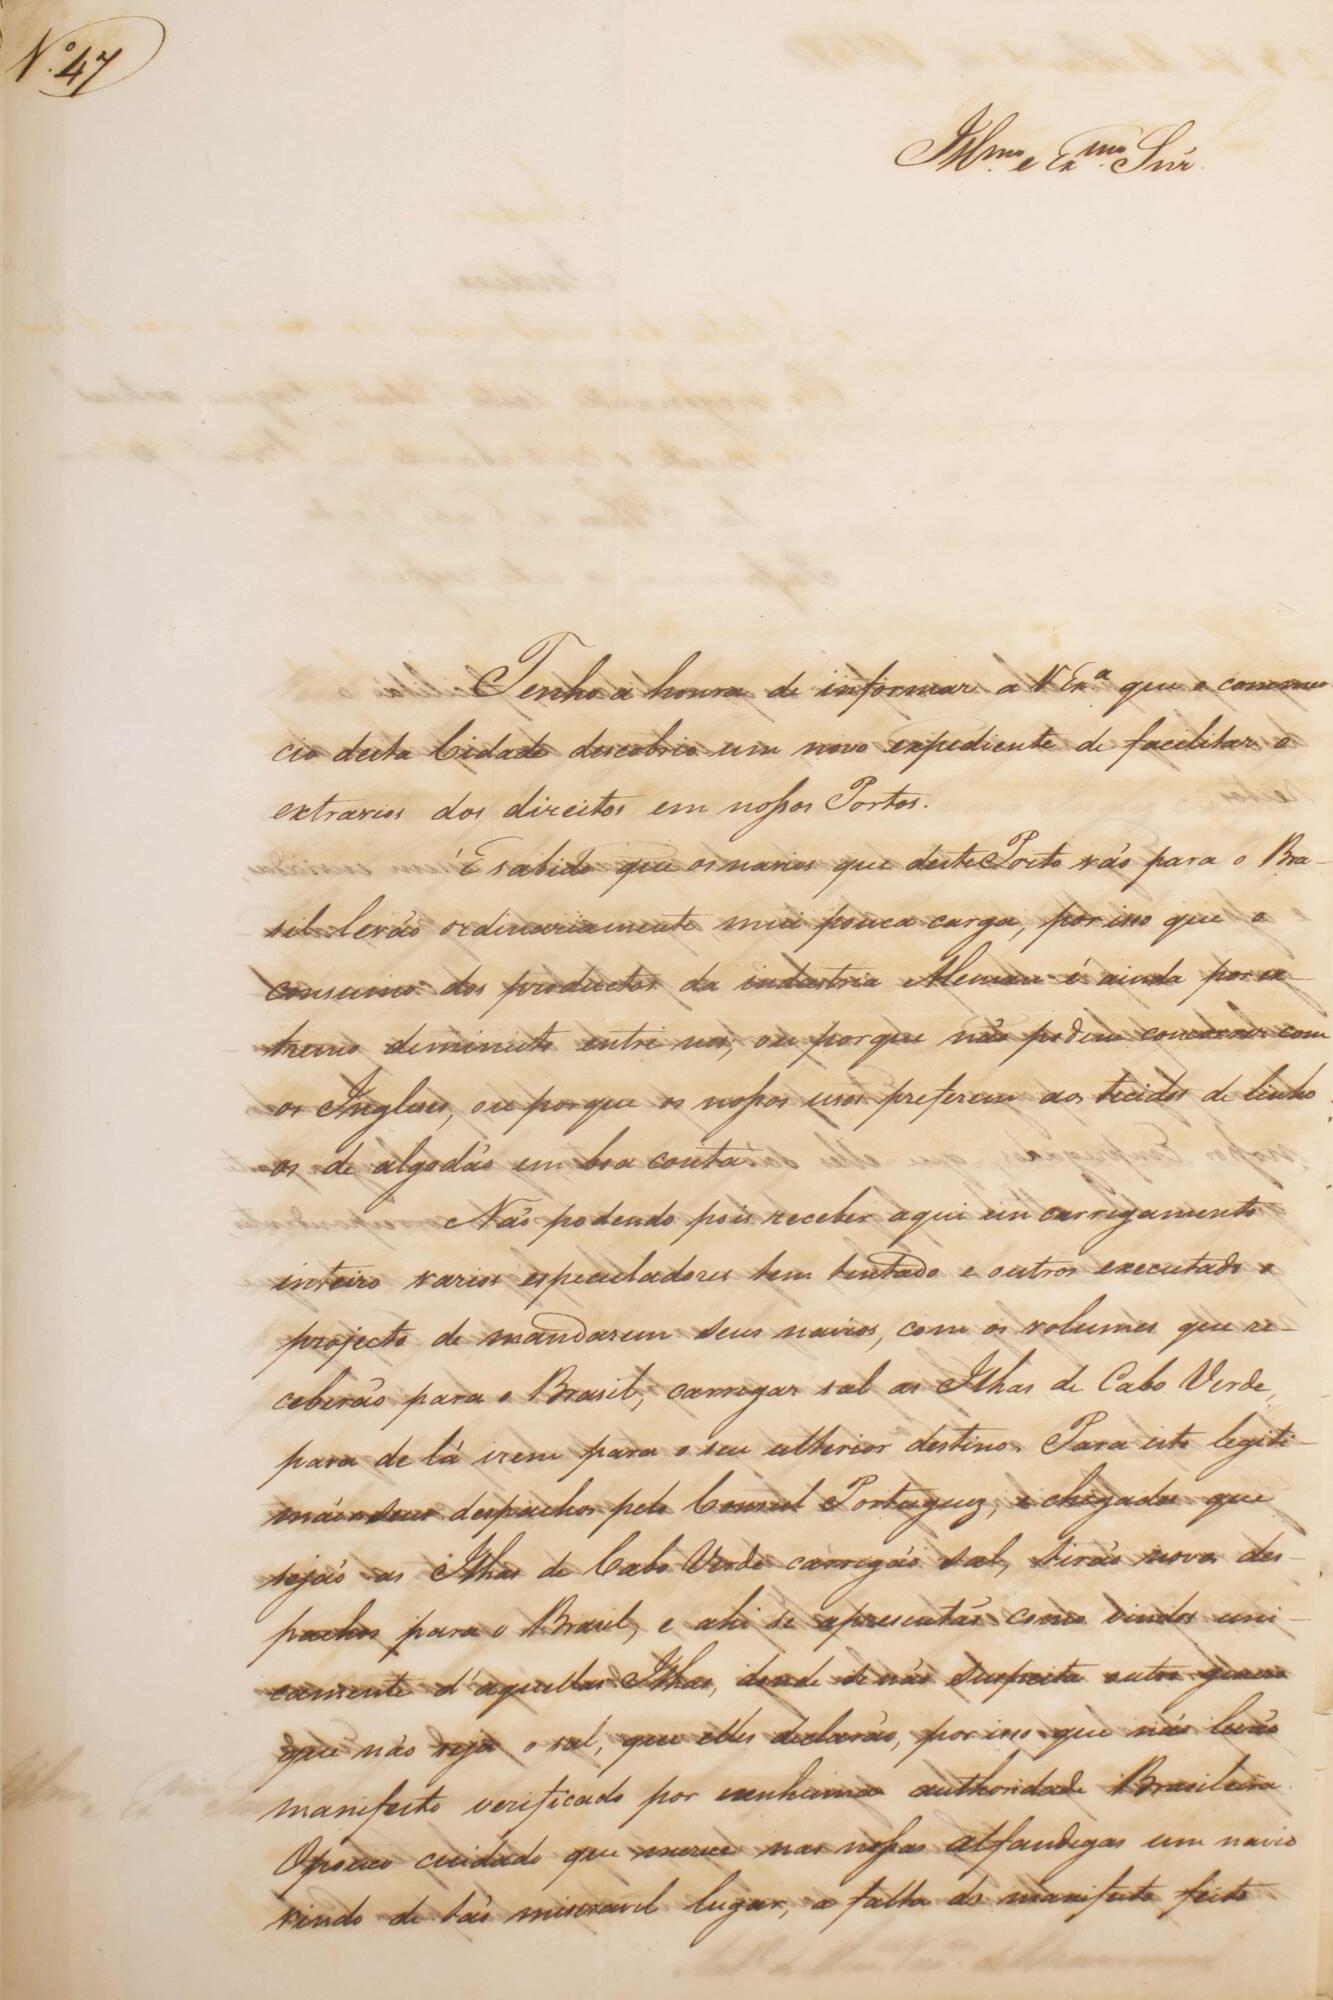 N.º 47
Illmo. e Exmo. Snr.
Tenho a honra de informar a V Exª que o commer
cio desta Cidade descobrio um novo expediente de facilitar o
extravios dos direitos em nossos Portos.
É sabido que os navios que deste Porto vão para o Bra-
sil levão ordinariamente mui pouca carga, por isso que o
consumo dos productos da industria Alemaã é ainda por ex-
tremo deminuto entre nos, ou porque não podem concorrer com
os Ingleses, ou porque os nossos usos preferem aos tecidos de linho
os de algodão em boa conta.
Não podendo pois receber aqui um carregamento
inteiro varios especuladores tem tentado e outros executado o
projecto de mandarem seus navios, com os volumes que re-
ceberão para o Brasil, carregar sal as Ilhas de Cabo Verde,
para de lá irem para o seu ulterior destino. Para isto legiti-
mão seus despachos pelo Consul Portuguez, e chegados que
sejão as Ilhas de Cabo Verde carregão sal, tirão novos des-
pachos para o Brasil, e ahi se apresentão como vindos uni-
camente d'aquellas Ilhas, donde se não suspeita outro genero
que não seja o sal, que elles declarão, por isso que não levão
manifesto verificado por nenhuma authoridade Brasileira.
O pouco cuidado que merece nas nossas alfandegas um navio
vindo de tão miseravel lugar, a falta do manifesto feito